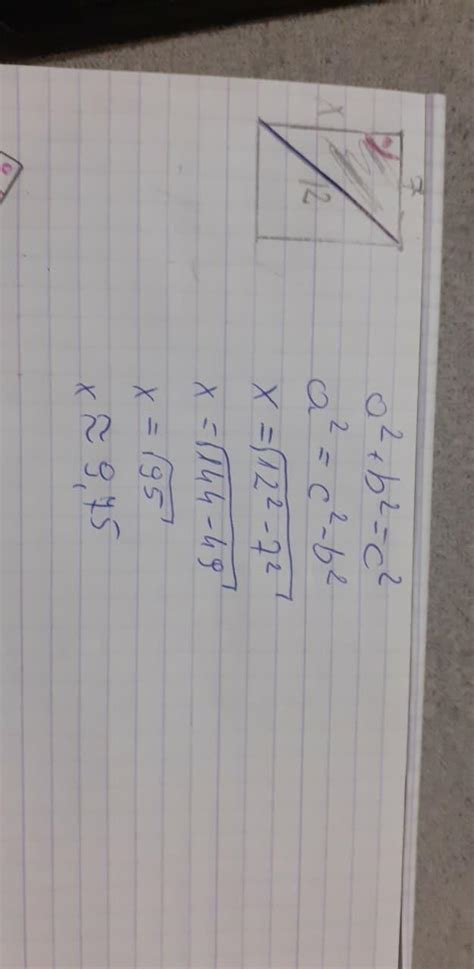 7
x
12
a² + b² = c²
a² = c² - b²
x = √12² - 7²
x = √144 - 49
x = √95
x ≈ 9,75